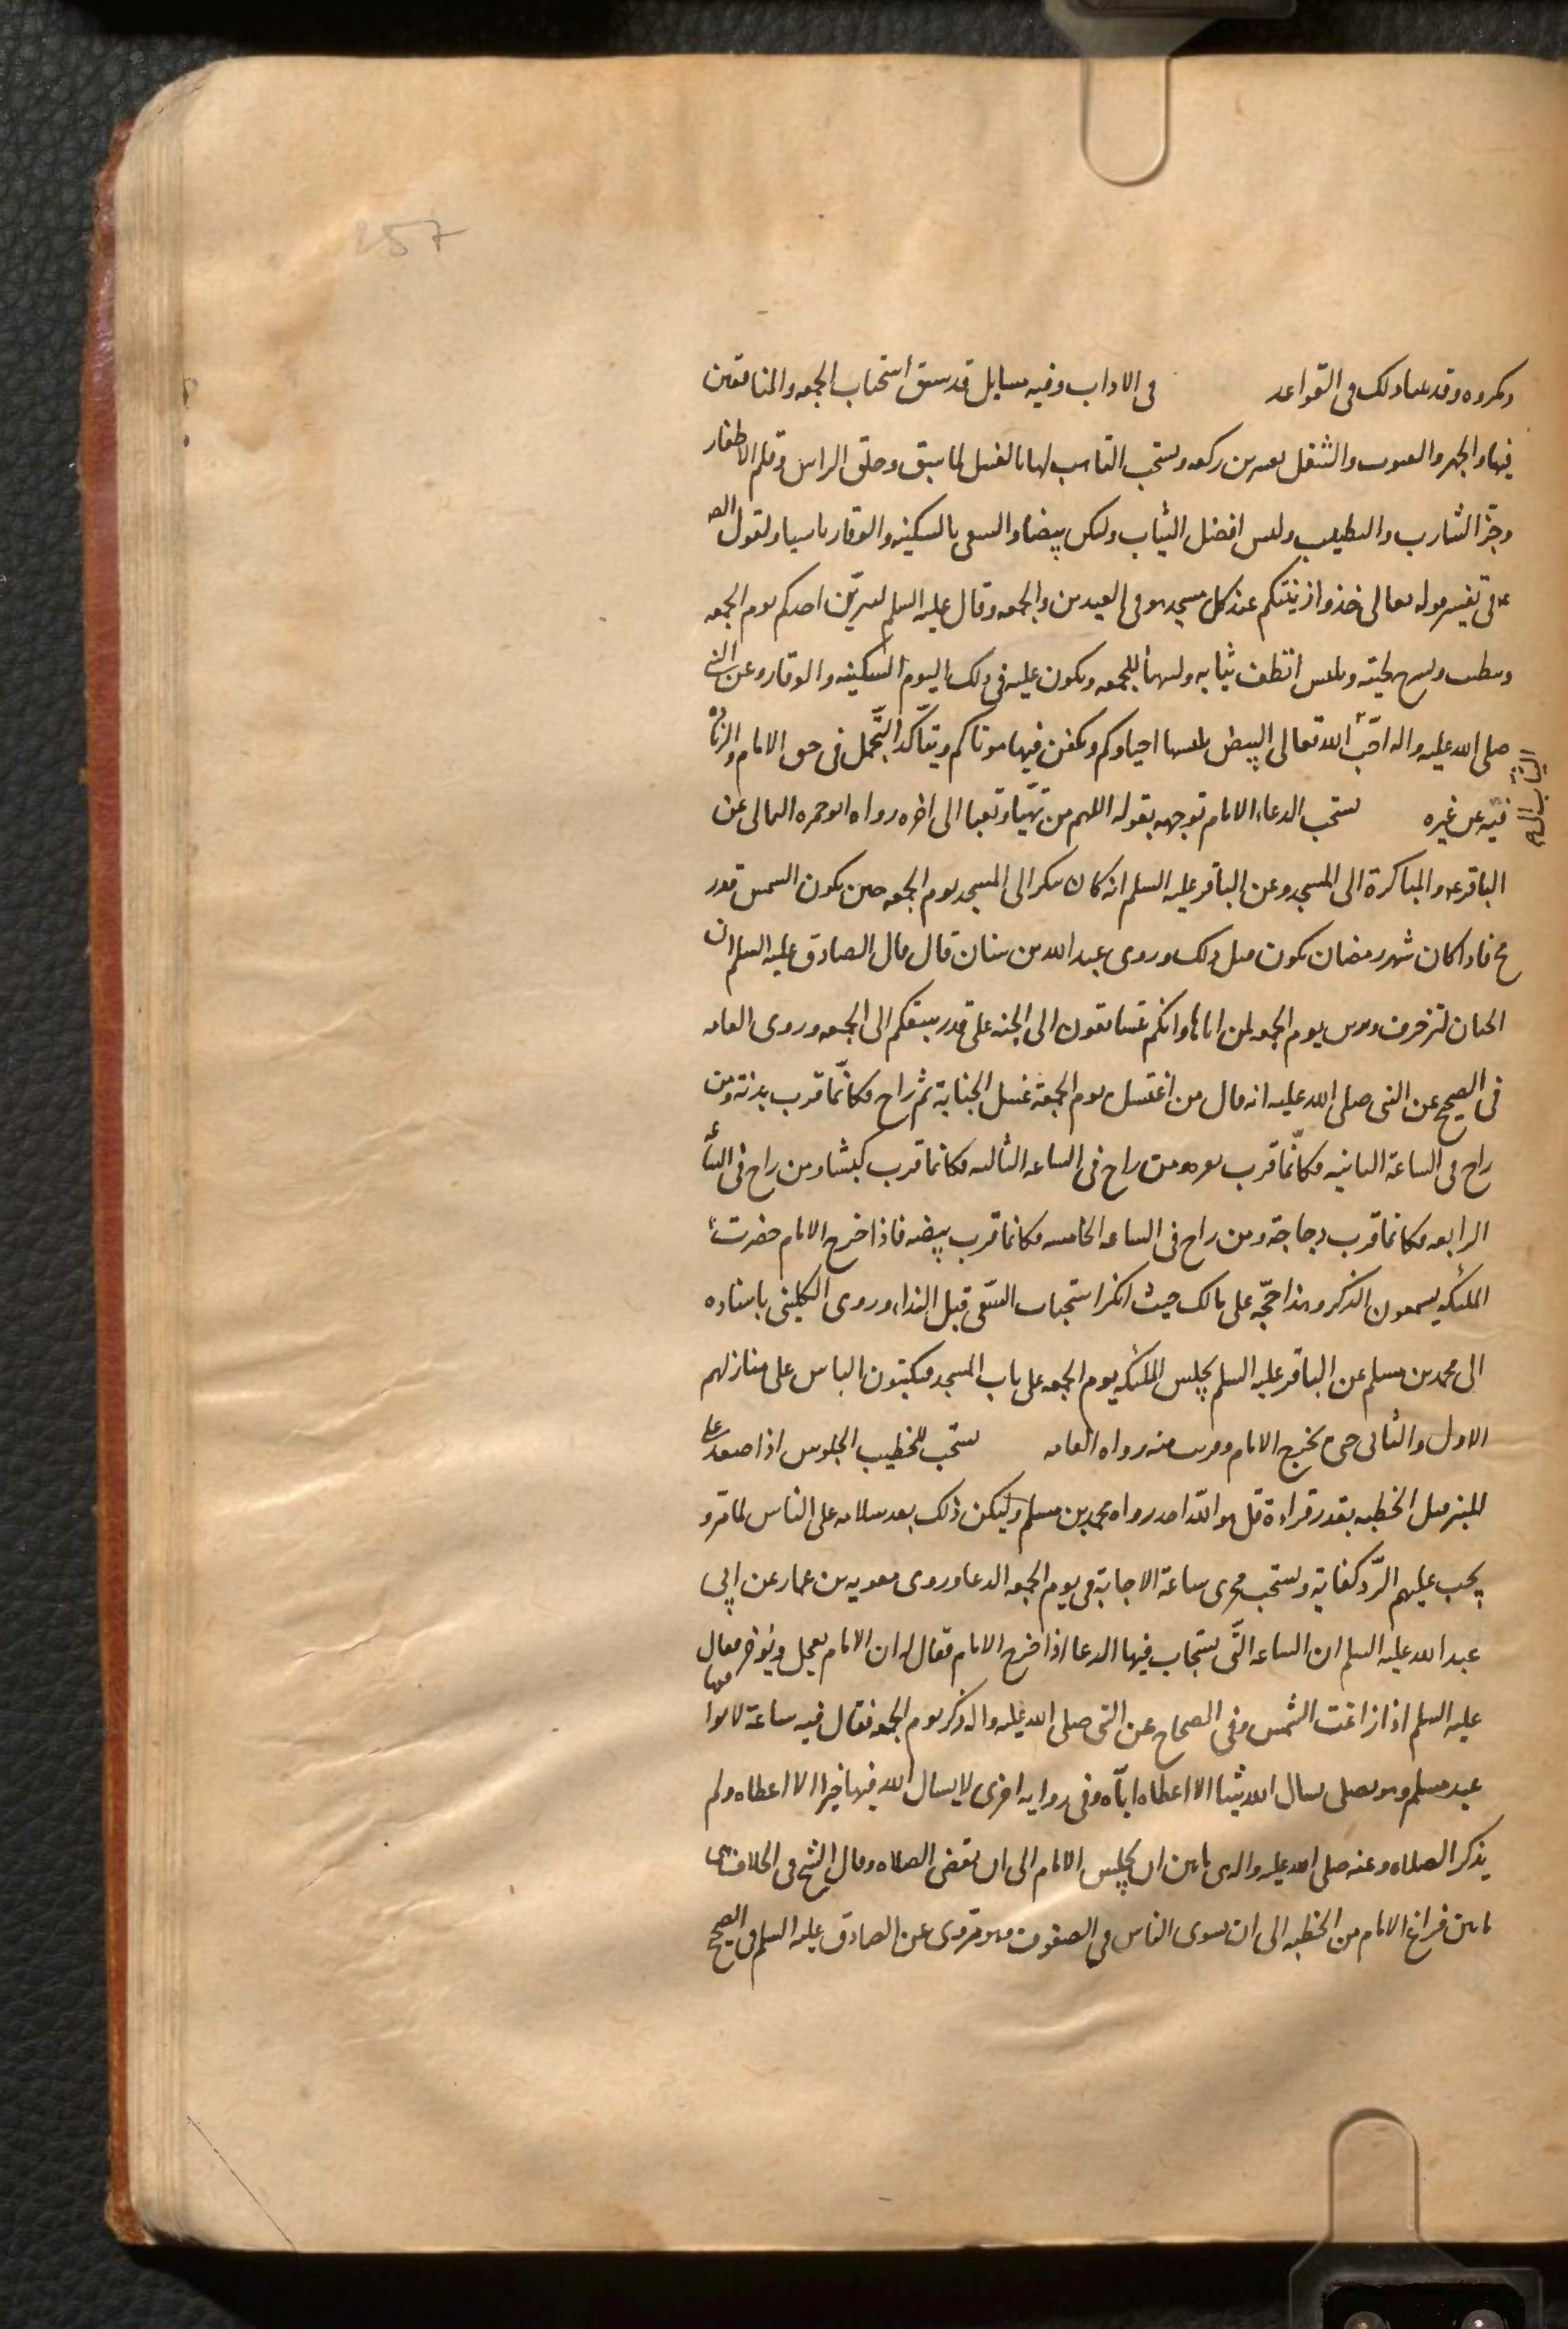 257
ومكروه وقد بينا ذلك في القواعد في الاداب وفيه مسايل قد سبق استحباب الجمعه والمنافقين
فيها والجهر والقنوت والتنفل بعشرين ركعه ويستحب التاهب لها بالغسل لما سبق وحلق الراس وقلم الاظفار
وجزّ الشارب والتطيب ولبس افضل الثياب وليكن بيضا والسعى بالسكينه والوقار ماسيا ولقول الص
ع في تفسير قوله تعالى خذوا زينتكم عند كل مسجد هو في العيدين والجمعه وقال عليه السلم ليتزيّن احدكم يوم الجمعه
ويتطيب ويسرح لحيته ويلبس انظف ثيابه وليتهيأ للجمعه ويكون عليه في ذلك اليوم السكينه والوقار وعن النبي
صلى الله عليه واله احبّ الله تعالى البيض يلبسها احياوكم ويكفن فيها موتاكم ويتأكد التّجمل في حق الامام والزيادة
الثياب الى
فيه عن غيره يستحب الدعاء الامام توجهه بقوله اللهم من تهيّا وتعبا الى اخره رواه ابو حمزه الثمالي عن
الباقر ع والمباكرة الى المسجد وعن الباقر عليه السلم انه كان يبكر الى المسجد يوم الجمعه حين يكون الشمس قدر
رمح فاذا كان شهر رمضان يكون قبل ذلك وروى عبد الله بن سنان قال قال الصادق عليه السلم ان
الجنان لتزخرف وتزين يوم الجمعه لمن اتاها وانكم تتسابقون الى الجنه على قدر سبقكم الى الجمعه وروى العامه
في الصحيح عن النبي صلى الله عليه انه قال من اغتسل يوم الجمعة غسل الجنابة ثم راح فكانّما قرب بدنة ومن
راح في الساعة الثانيه فكانّما قرب بقره ومن راح في الساعه الثالثه فكانما قرب كبشا ومن راح في الساعه
الرابعه فكانما قرب دجاجة ومن راح في الساعه الخامسه فكانما قرب بيضه فاذا خرج الامام حضرت
الملئكه يسمعون الذكر وهذا حجّه على مالك حيث انكر استحباب السّعى قبل النداء وروى الكليني باسناده
الى محمد بن مسلم عن الباقر عليه السلم يجلس الملئكه يوم الجمعه على باب المسجد فيكتبون الناس على منازلهم
الاول والثاني حتى يخرج الامام وقريب منه رواه العامه يستحب للخطيب الجلوس اذا صعد على
المنبر قبل الخطبه بقدر قراءة قل هو الله احد رواه محمد بن مسلم وليكن ذلك بعد سلامه على الناس لما مر و
يجب عليهم الرّد كفاية ويستحب تحرى ساعة الاجابة في يوم الجمعه الدعا وروى معويه بن عمار عن ابي
عبد الله عليه السلم ان الساعه الّتي يستجاب فيها الدعا اذا خرج الامام فقال له ان الامام يعجل ويؤخر فقال
عليه السلم اذا زاغت الشمس وفي الصحاح عن النبي صلى الله عليه واله ذكر يوم الجمعه فقال فيه ساعة لا يوافقها
عبد مسلم وهو يصلى يسال الله شيئا الا اعطاه ايّاه وفي روايه اخرى لا يسال الله فيها خيرا الا اعطاه ولم
يذكر الصلاه وعنه صلى الله عليه واله هي ما بين ان يجلس الامام الى ان تقضى الصلاه وقال الشيخ في الخلاف هي
ما بين فراغ الامام من الخطبه الى ان يستوى الناس في الصفوف وهو مروى عن الصادق عليه السلم في الصحيح